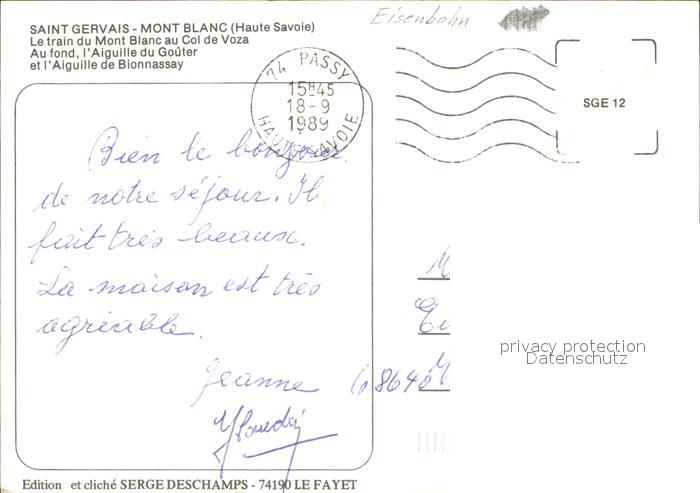 SAINT GERVAIS - MONT BLANC (Haute Savoie)
Le train du Mont Blanc au Col de Voza
Au fond, l'Aiguille du Goûter
et l'Aiguille de Bionnassay
Eisenbahn
74 PASSY
15H45
18-9
1989
HAUTE SAVOIE
SGE 12
Bien le bonjour
de notre séjour. Il
fait très beaux.
La maison est très
agréable.
Jeanne
M
privacy protection
Datenschutz
68640 M
Edition et cliché SERGE DESCHAMPS - 74190 LE FAYET